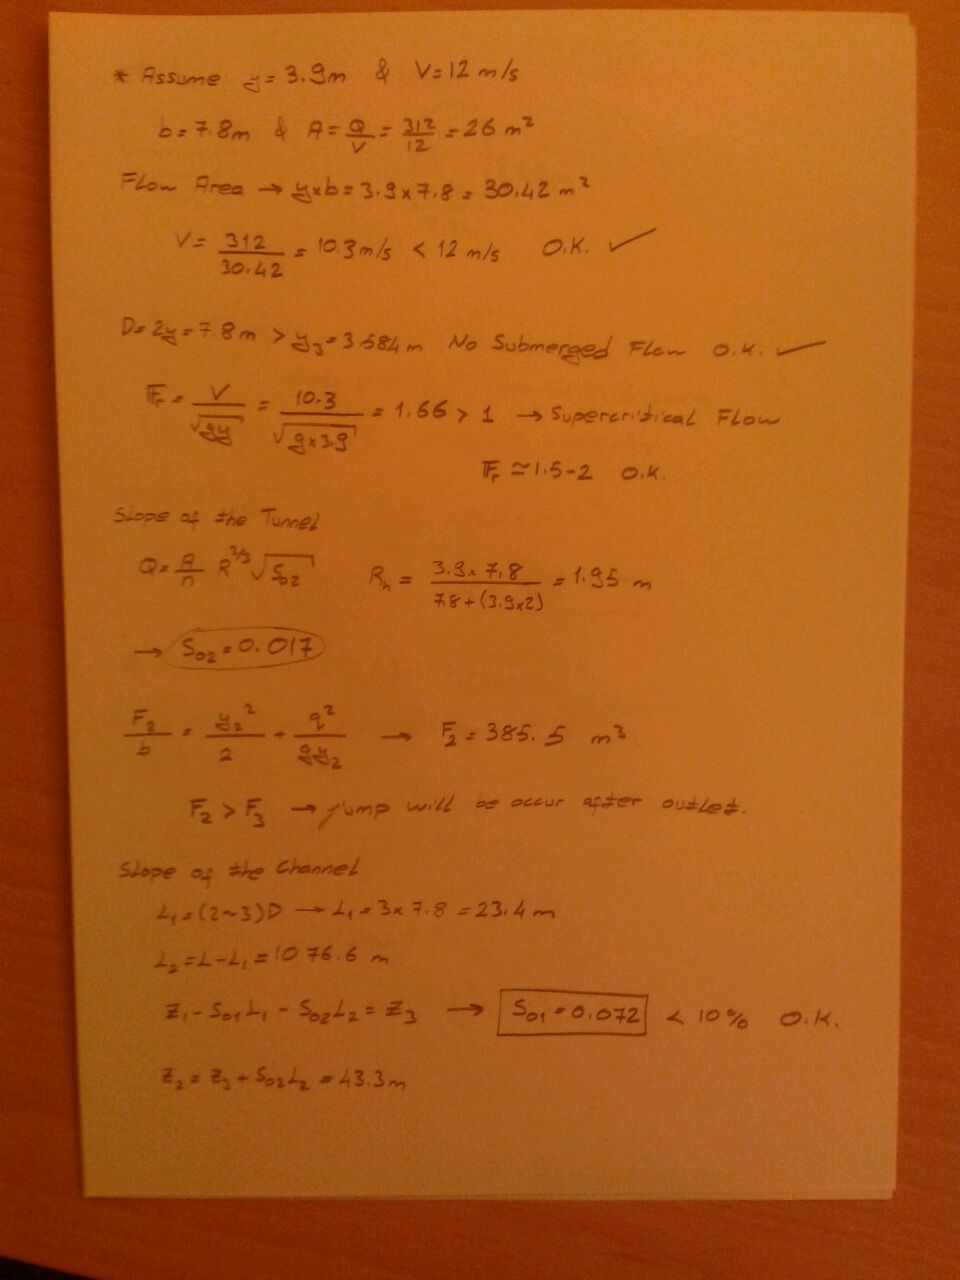 * Assume y = 3.9m & V=12 m/s
b = 7.8m & A = Q/V = 312/12 = 26 m²
Flow Area → y×b = 3.9 × 7.8 = 30.42 m²
V = 312/30.42 = 10.3 m/s < 12 m/s O.K. ✓
D = 2y = 7.8 m > y₃ = 3.584 m No Submerged Flow O.K. ✓
Fr = V/√gy = 10.3/√g×3.9 = 1.66 > 1 → Supercritical Flow
Fr ≃ 1.5-2 O.K.
Slope of the Tunnel
Q = A/n R^2/3 √S₀₂ Rₕ = 3.9 × 7.8/7.8 + (3.9×2) = 1.95 m
→ S₀₂ = 0.017
F₂/b = y₂²/2 + q²/gy₂ → F₂ = 385.5 m³
F₂ > F₃ → jump will be occur after outlet.
Slope of the Channel
L₁ = (2~3)D → L₁ = 3 × 7.8 = 23.4 m
L₂ = L - L₁ = 1076.6 m
Z₁ - S₀₁L₁ - S₀₂L₂ = Z₃ → S₀₁ = 0.072 < 10% O.K.
Z₂ = Z₃ + S₀₂L₂ = 43.3m